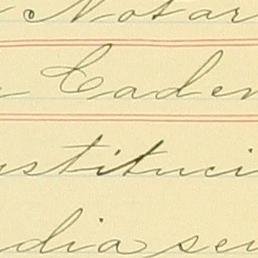 Notar
Caden
stituci
dia sei